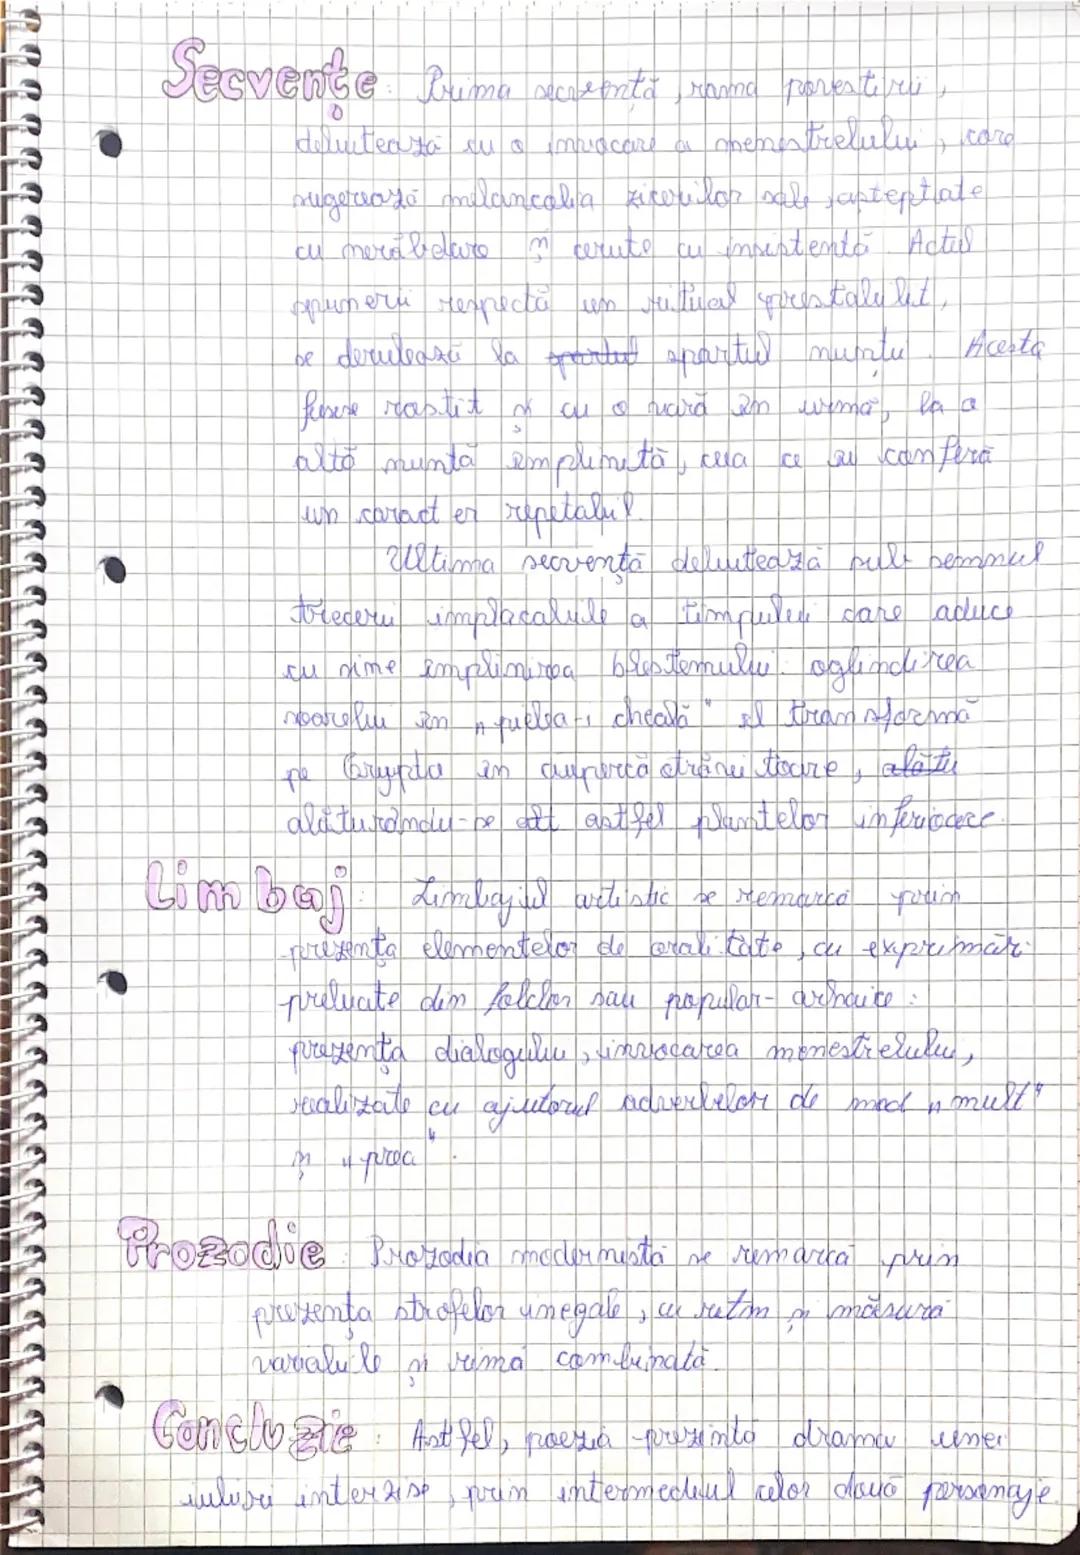 Secvențe: Prima secvență, rama povestirii,
debutează cu o invocare a menestrelului, care
sugerează melancolia zicerilor sale, așteptate
cu nerăbdare și cerute cu insistență. Actul
spunerii respectă un ritual prestabilit,
se derulează la spartul nunții. Acesta
fusese rostit și cu o vară în urmă, la o
altă nuntă împlinită, ceea ce îi conferă
un caracter repetabil.
Ultima secvență debutează sub semnul
trecerii implacabile a timpului care aduce
cu sine împlinirea blestemului: oglindirea
soarelui în „pielea-i cheală" îl transformă
pe Crypto în ciupercă otrăvitoare,
alăturându-se astfel plantelor inferioare.
Limbaj: Limbajul artistic se remarcă prin
prezența elementelor de oralitate, cu exprimări
preluate din folclor sau popular-arhaice:
prezența dialogului, invocarea menestrelului,
realizate cu ajutorul adverbelor de mod „mult"
și „prea".
Prozodie: Prozodia modernistă se remarcă prin
prezența strofelor inegale, cu ritm și măsură
variabile și rimă combinată.
Concluzie: Astfel, poezia prezintă drama unei
iubiri interzise, prin intermediul celor două personaje